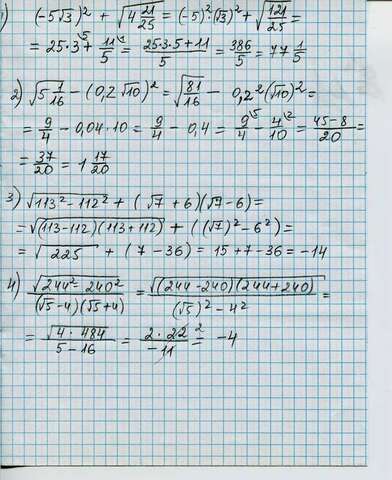 1) (-5√3)² + √(4 21/25) = (-5)²·(√3)² + √(121/25) =
= 25·3 + 11/5 = (25·3·5+11)/5 = 386/5 = 77 1/5
2) √(5 1/16) - (0,2√10)² = √(81/16) - 0,2²(√10)² =
= 9/4 - 0,04·10 = 9/4 - 0,4 = 9/4 - 4/10 = (45-8)/20 =
= 37/20 = 1 17/20
3) √(113²-112²) + (√7+6)(√7-6) =
= √((113-112)(113+112)) + ((√7)²-6²) =
= √225 + (7-36) = 15+7-36 = -14
4) √(244²-240²)/((√5-4)(√5+4)) = √((244-240)(244+240))/((√5)²-4²) =
= √(4·484)/(5-16) = (2·22)/(-11) = -4